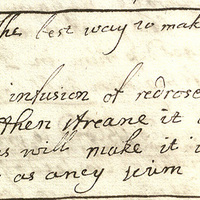 The best way to mak
infusion of redrose
then streane it
will make it
as aney scum